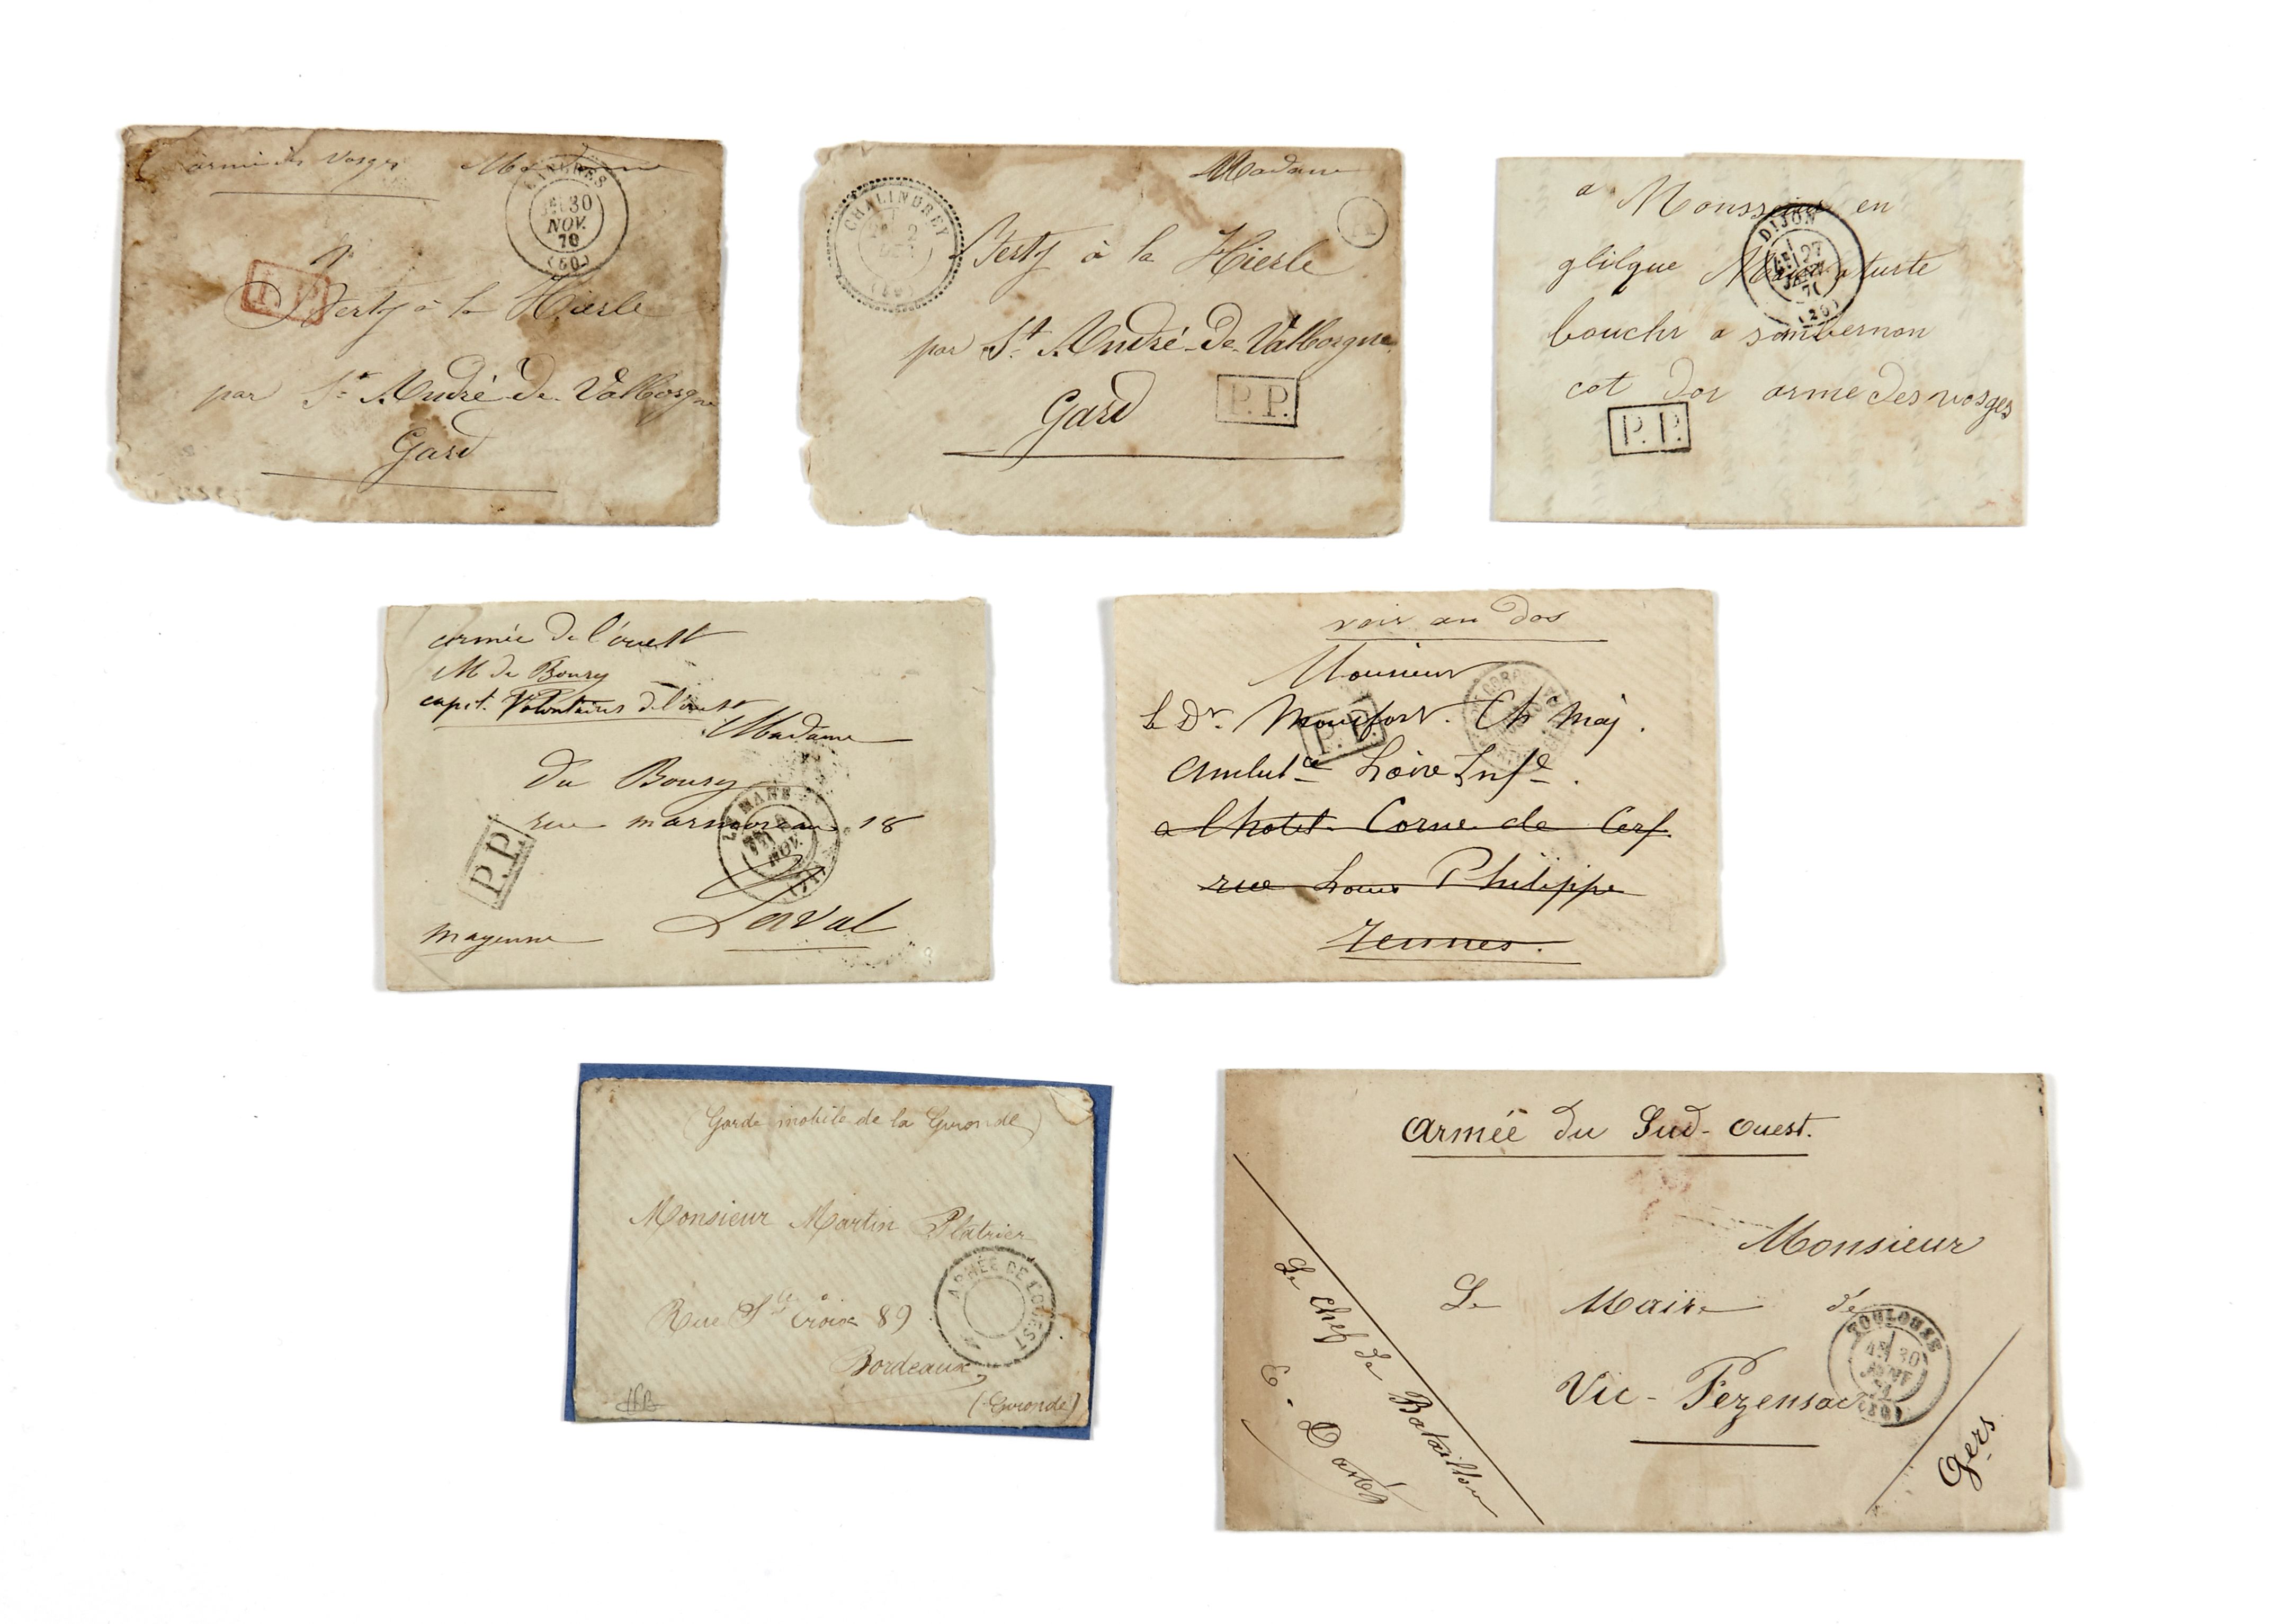 armée des Vosges Madame
LANGRES
30
NOV.
70
(50)
P.P.
à la Hierle
par St André-de-Valborgne
Gard
Madame
CHALINDREY
2
à la Hierle
par St André-de-Valborgne
Gard
P.P.
a Monssieur en
DIJON
27
JANV.
71
(20)
glilque
bouchr a sombernon
cot dor arme des vosges
P.P.
armée de l'ouest
M de Boury
capit. Volontaires de l'ouest
Madame
Du Boury
rue marmoreau 18
LE MANS
NOV.
P.P.
Laval
mayenne
voir au dos
Monsieur
le Dr. Montfort. Ch Maj.
P.P.
Ambulce Loire Infe.
a lhotel Corne de Cerf
rue Louis Philippe
Rennes.
(Garde mobile de la Gironde)
Monsieur Martin Platrier
ARMÉE DE L'OUEST
Rue Ste Croix 89
Bordeaux
(Gironde)
Armée du Sud-Ouest.
Monsieur
Le Maire de
TOULOUSE
30
JANV
71
Vic-Fezensac
Gers
Le Chef de Bataillon